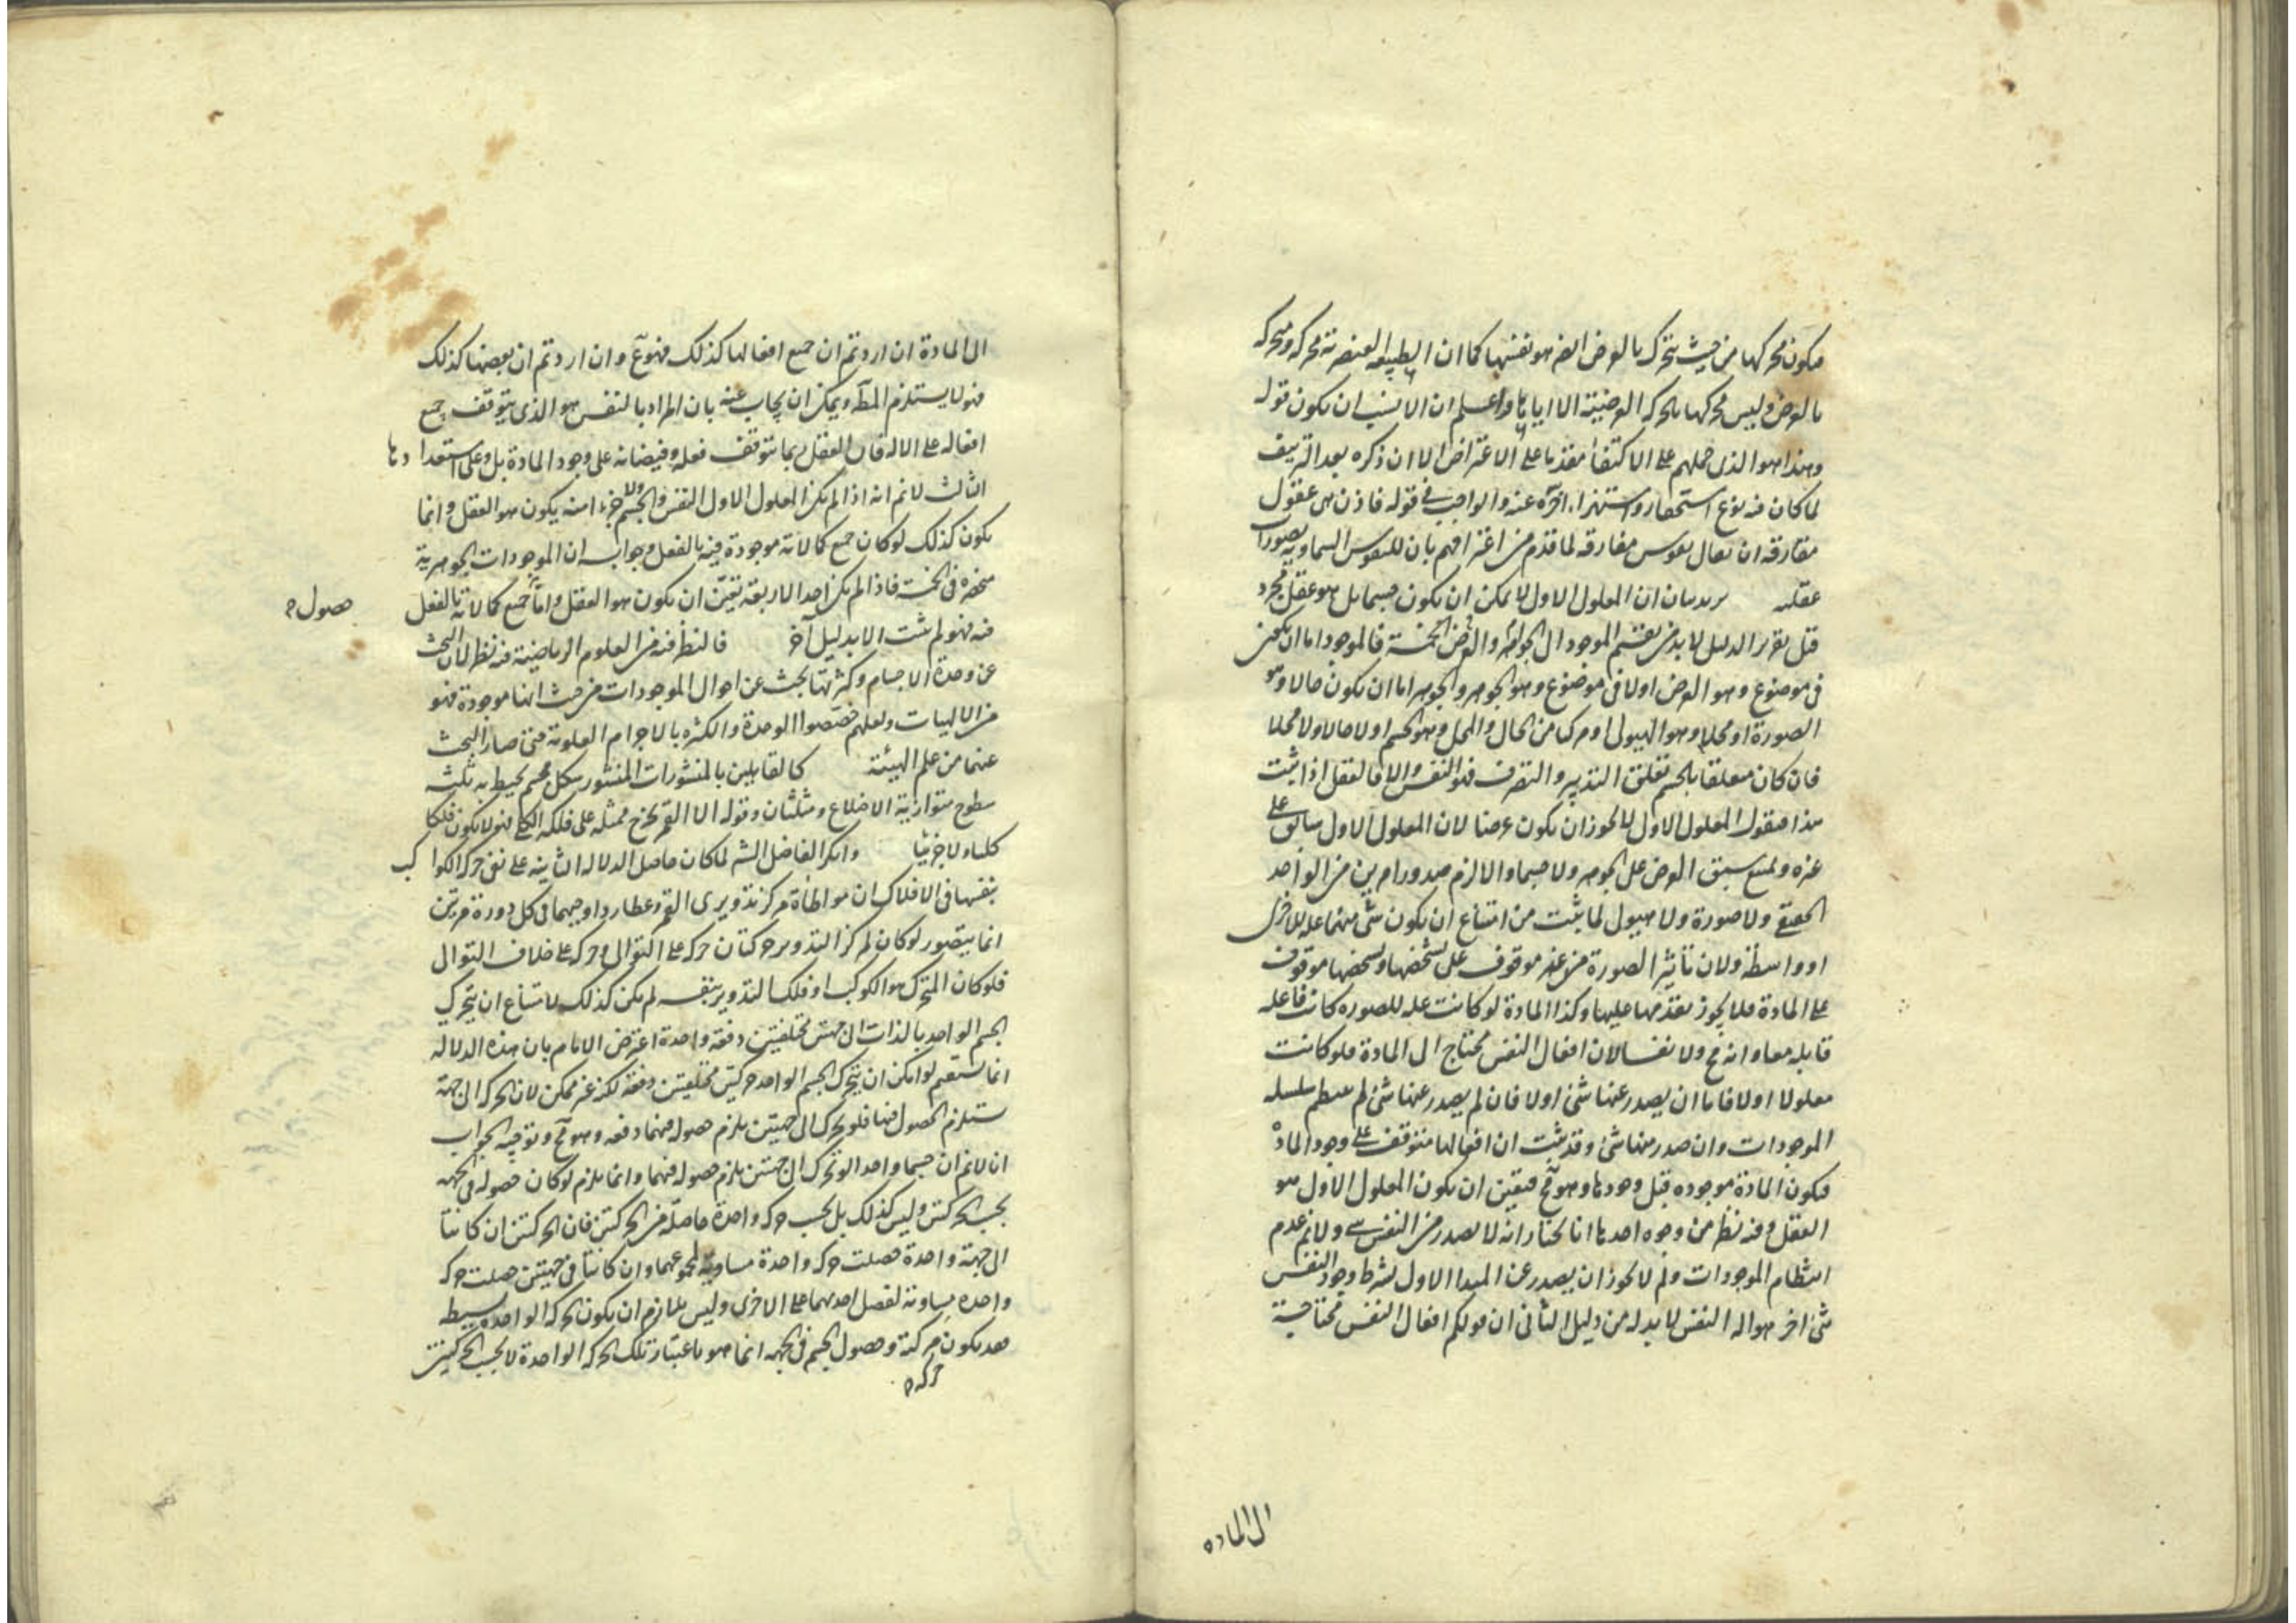 فيكون محركها من حيث يتحرك بالعرض ايضا هو نفسها كما ان الطبيعة العنصرية محركة ومتحركة
بالعرض وليس محركها بالحركة العرضية الا اياها واعلم ان الانسب ان يكون قوله
وهذا هو الذى حملهم على الاكتفاء مقدما على الاعتراض الا ان ذكره بعد التزييف
لما كان فيه نوع استحقار واستهزاء اخره عنه والواجب فى قوله فاذن هى عقول
مفارقة ان يقال نفوس مفارقة لما قدم من اعترافهم بان للنفوس السماوية تصورات
عقلية يريد بيان ان المعلول الاول لا يمكن ان يكون جسما بل هو عقل مجرد
قبل تقرير الدليل لا بد من تقسيم الموجود الى الجواهر والعرض الخمسة فالموجود اما ان يكون
فى موضوع وهو العرض اولا فى موضوع وهو الجوهر والجوهر اما ان يكون حالا وهو
الصورة او محلا وهو الهيولى او مركبا من الحال والمحل وهو الجسم اولا حالا ولا محلا
فان كان متعلقا بالجسم تعلق التدبير والتصرف فهو النفس والا فالعقل اذا ثبت
هذا فنقول المعلول الاول لا يجوز ان يكون عرضا لان المعلول الاول سابق على
غيره ويمتنع سبق العرض على الجوهر ولا جسما والا لزم صدور امرين من الواحد
الحقيقى ولا صورة ولا هيولى لما ثبت من امتناع ان يكون شئ منهما علة للاخرى
او واسطة ولان تأثير الصورة فى غيره موقوف على تشخصها وتشخصها موقوف
على المادة فلا يجوز تقدمها عليها وكذا المادة لو كانت علة للصورة كانت فاعلة
قابلة معا وانه مح ولا نفسا لان افعال النفس محتاج الى المادة فلو كانت
معلولا اولا فاما ان يصدر عنها شئ اولا فان لم يصدر عنها شئ لم ينتظم سلسلة
الموجودات وان صدر منها شئ وقد ثبت ان افعالها متوقف على وجود المادة
فيكون المادة موجودة قبل وجودها وهو مح فتعين ان يكون المعلول الاول هو
العقل وفيه نظر من وجوه احدها انا نختار انه لا يصدر من النفس شئ ولانم عدم
انتظام الموجودات ولم لا يجوز ان يصدر عن المبدا الاول بشرط وجود النفس
شئ اخر هو اله النفس لا بد له من دليل الثانى ان قولكم افعال النفس محتاجة
الى المادة
الى المادة ان اردتم ان جميع افعالها كذلك فهو مع وان اردتم ان بعضها كذلك
فهو لا يستلزم المط ويمكن ان يجاب عنه بان المراد بالنفس هو الذى يتوقف جميع
افعاله على الالة فان العقل ربما يتوقف فعله وفيضانه على وجود المادة بل وعلى استعدادها
الثالث لانم انه اذا لم يكن المعلول الاول النفس والجسم ولا جزءا منه يكون هو العقل وانما
يكون كذلك لو كان جميع كمالاته موجودة فيه بالفعل وجوابه ان الموجودات الجوهرية
منحصرة فى الخمسة فاذا لم يكن احد الاربعة تعين ان يكون هو العقل واما جميع كمالاته بالفعل
حصول
فيه فهو لم يثبت الا بدليل آخر فالنظر فيه من العلوم الرياضية فيه نظر لان البحث
عن وحدة الاجسام وكثرتها بحث عن احوال الموجودات من حيث انها موجودة فهو
من الالهيات ولعلهم خصصوا الوحدة والكثرة بالاجرام العلوية حتى صار البحث
عنهما من علم الهيئة كالقايلين بالمنشورات المنشور شكل مجسم يحيط به ثلثة
سطوح متوازية الاضلاع ومثلثان وقوله الا القمر يخرج ممثله على فلكه الكلى فهو لا يكون فلكا
كليا ولا جزئيا وانكر الفاضل الشه لما كان حاصل الدلالة الثانية على نفى حركة الكواكب
بنفسها فى الافلاك ان موافاة مركز تدويرى القمر وعطارد اوجيهما فى كل دورة مرتين
انما يتصور لو كان لمركز التدوير حركتان حركة على التوالى وحركة على خلاف التوالى
فلو كان المتحرك هو الكوكب او فلك التدوير بنفسه لم يكن كذلك لامتناع ان يتحرك
الجسم الواحد بالذات الى جهتين مختلفتين دفعة واحدة اعترض الامام بان هذه الدلالة
انما تستقيم لو امكن ان يتحرك الجسم الواحد حركتين مختلفتين دفعة لكنه غير ممكن لان الحركة الى جهة
يستلزم الحصول فيها فلو تحرك الى جهتين يلزم حصوله فيهما دفعة وهو مح وتوجيه الجواب
ان لانم ان جسما واحدا لو تحرك الى جهتين يلزم حصوله فيهما وانما يلزم لو كان حصوله فى الجهة
بحسب الحركتين وليس كذلك بل بحسب حركة واحدة حاصلة من الحركتين فان الحركتين ان كانتا
الى جهة واحدة حصلت حركة واحدة مساوية لمجموعهما وان كانتا فى جهتين حصلت حركة
واحدة مساوية لفضل احديهما على الاخرى وليس يلزم ان يكون الحركة الواحدة بسيطة
فقد يكون مركبة وحصول الجسم فى الجهة انما هو باعتبار تلك الحركة الواحدة لا بحسب الحركتين
حركة